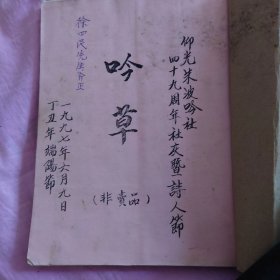 仰光朱波吟社
四十九周年社庆暨诗人節
吟草
(非卖品)
一九九七年六月九日
丁丑年端陽節
徐四民先生斧正